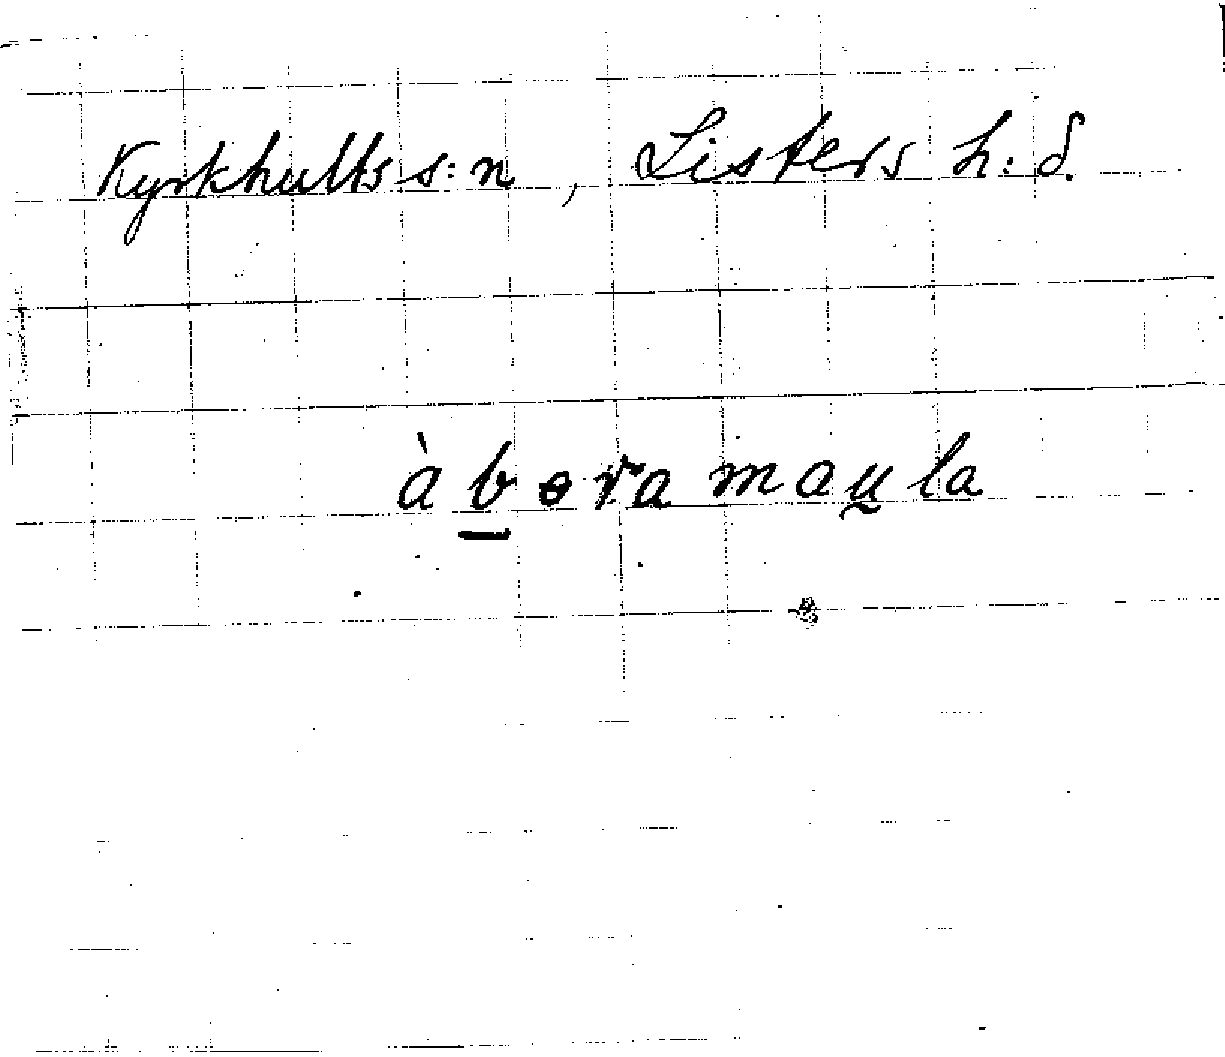 Kyrkhults s:n, Listers h:d.
àbɵramau̯la